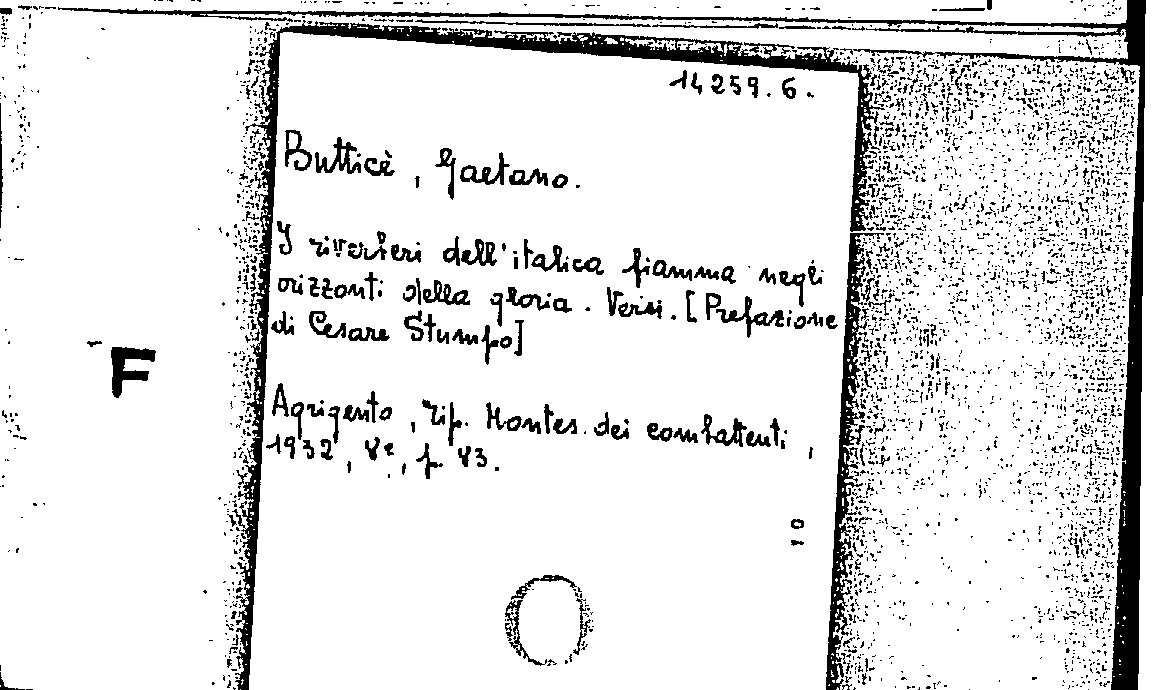 14259.6.
Butticè, Gaetano.
I riverberi dell'italica fiamma negli
orizzonti della gloria. Versi. [Prefazione
di Cesare Stumpo]
F
Agrigento, tip. Montes. dei combattenti,
1932, 8°, p. 83.
10